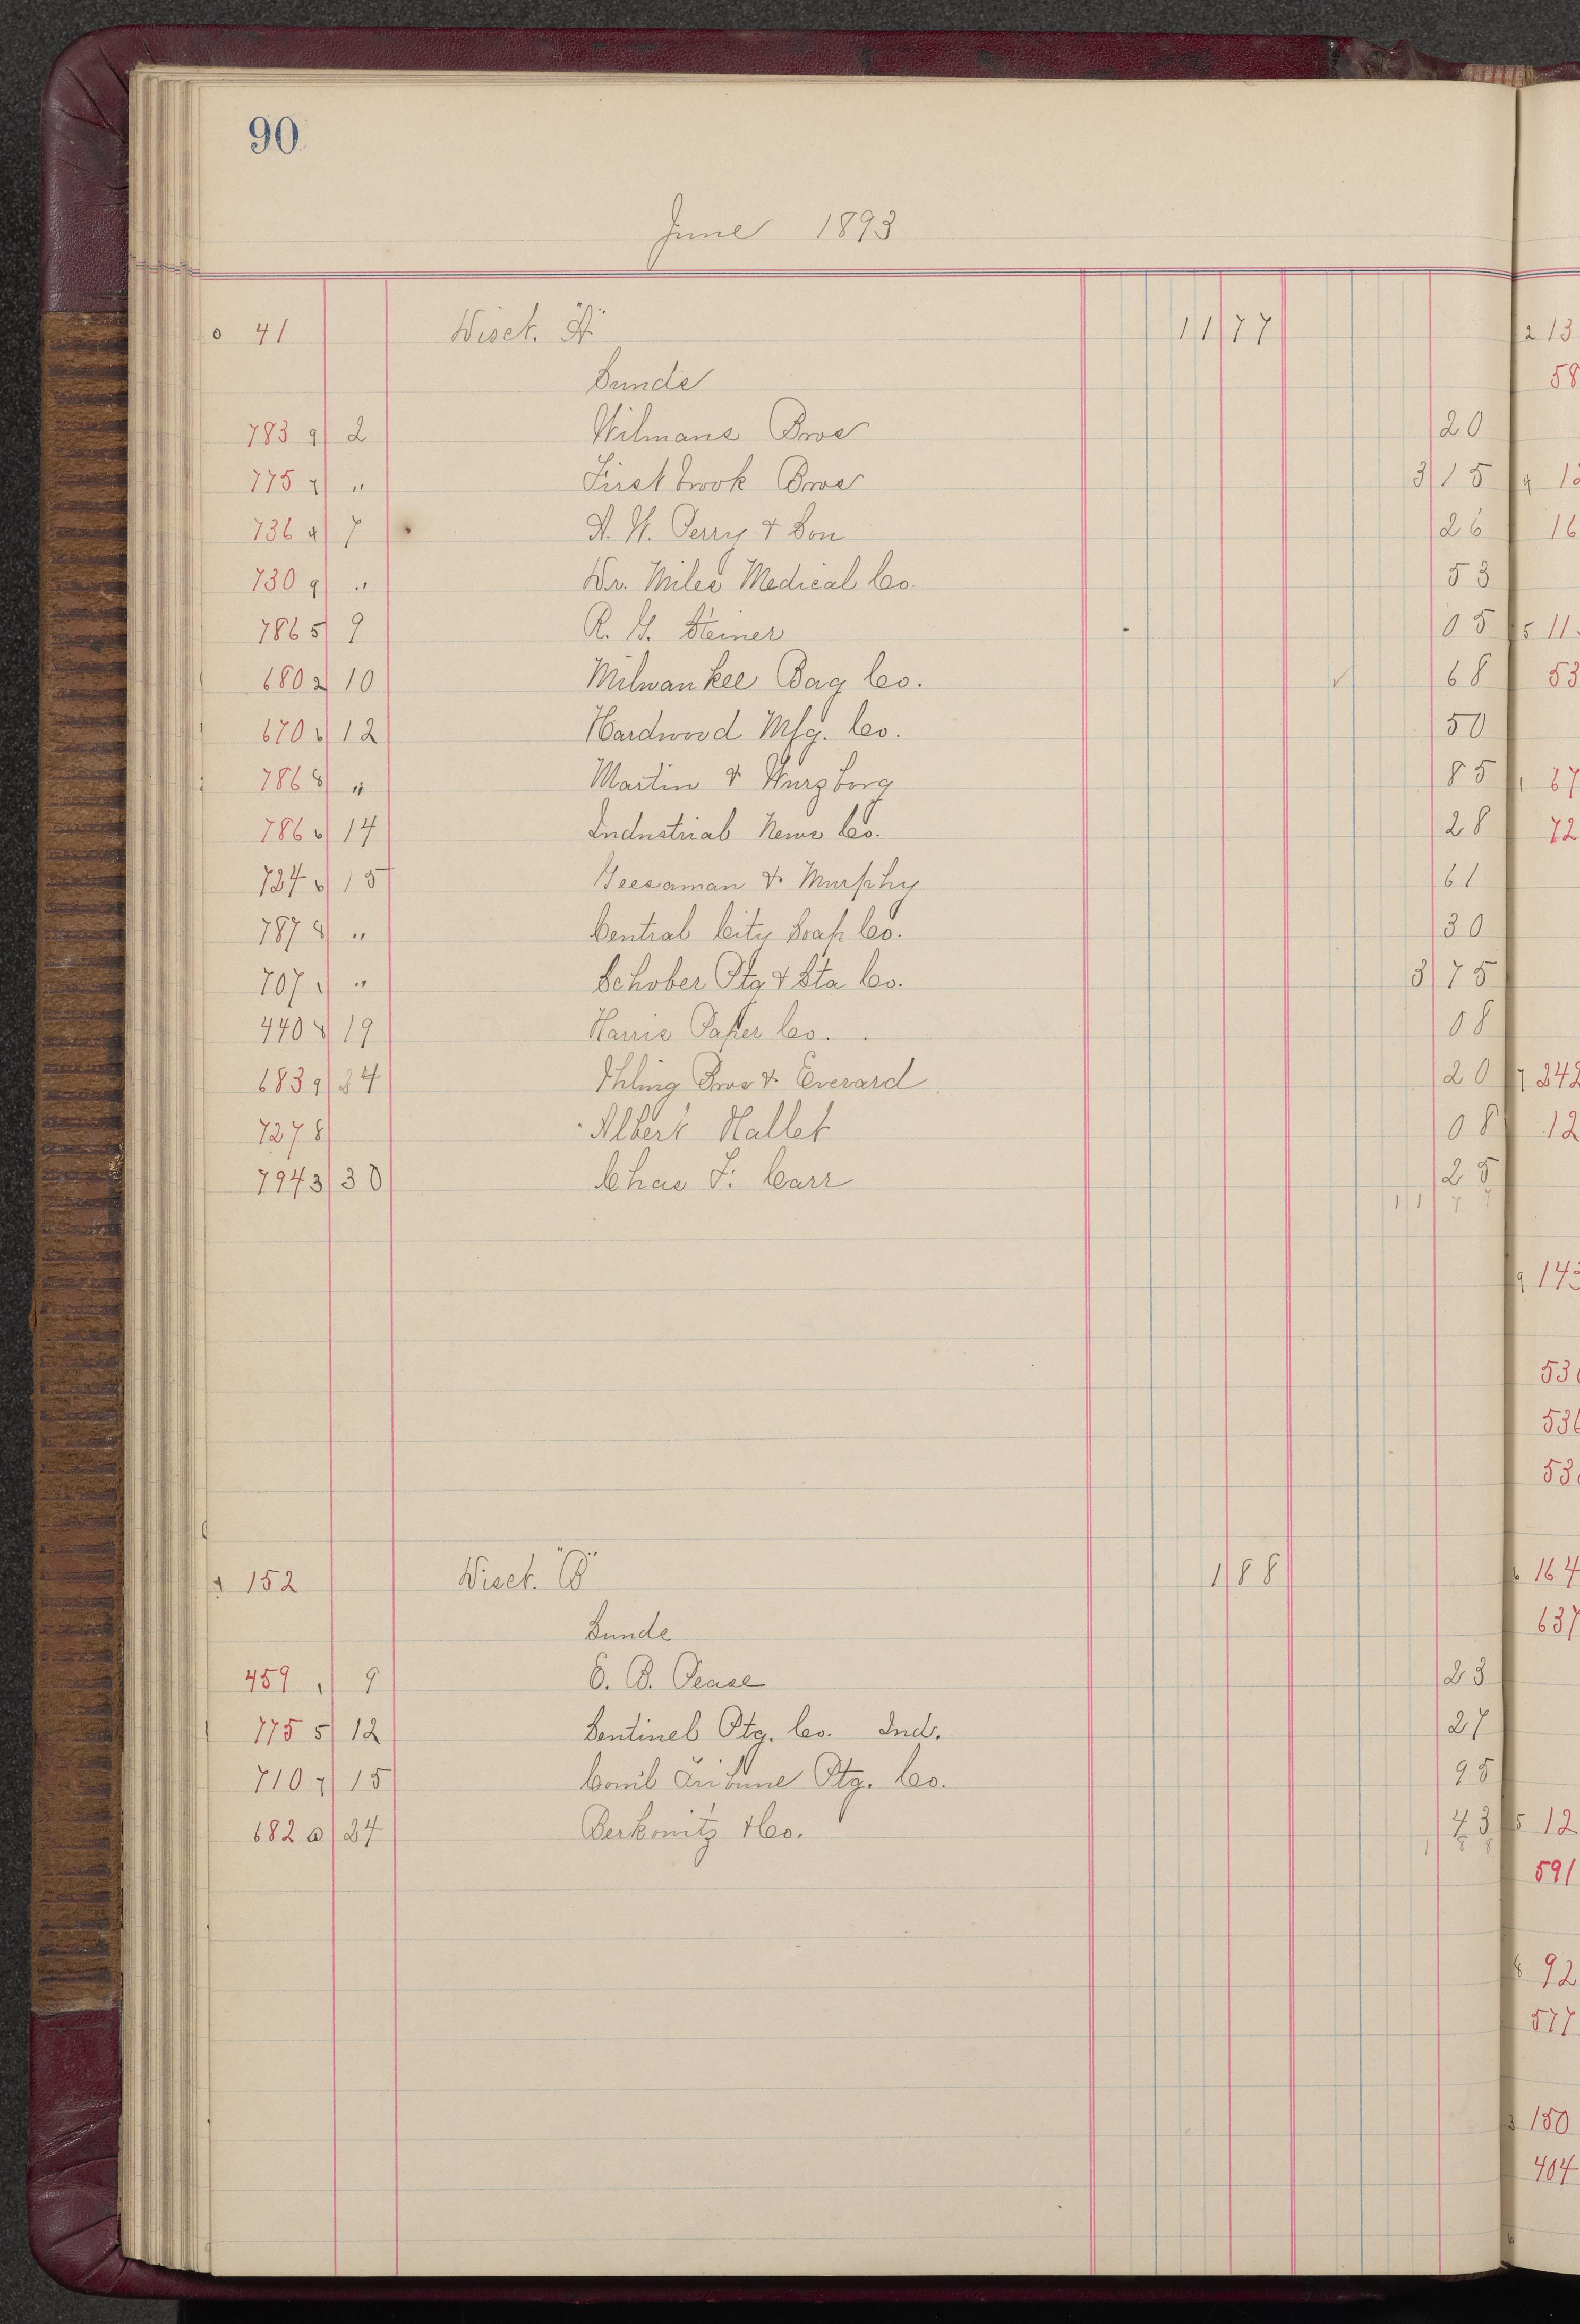 90
June 1893
0 41 Disct. "A" 11 77
Sunds
783 9 2 Wilmans Bros 20
775 7 " Firstbrook Bros 3 15
736 4 7 A. W. Perry & Son 26
730 9 " Dr. Miles Medical Co. 53
786 5 9 R. G. Steiner 05
680 2 10 Milwaukee Bag Co. ✓ 68
670 6 12 Hardwood Mfg. Co. 50
786 8 " Martin & Wurzborg 85
786 6 14 Industrial News Co. 28
724 6 15 Geesaman & Murphy 61
787 8 " Central City Soap Co. 30
707 1 " Schober Ptg & Sta Co. 3 75
440 8 19 Harris Paper Co. 08
683 9 24 Ihling Bros & Everard 20
727 8 Albert Hallet 08
794 3 30 Chas F. Carr 25
11 77
152 Disct. "B" 1 88
Sunds
459 1 9 E. B. Pease 23
775 5 12 Sentinel Ptg. Co. Ind. 27
710 7 15 Coml Tribune Ptg. Co. 95
682 0 24 Berkowitz & Co. 43
1 88
2 13
58
4 12
16
5 11
53
1 67
72
7 242
12
9 143
53
536
53
6 164
637
5 12
591
8 92
577
3 150
404